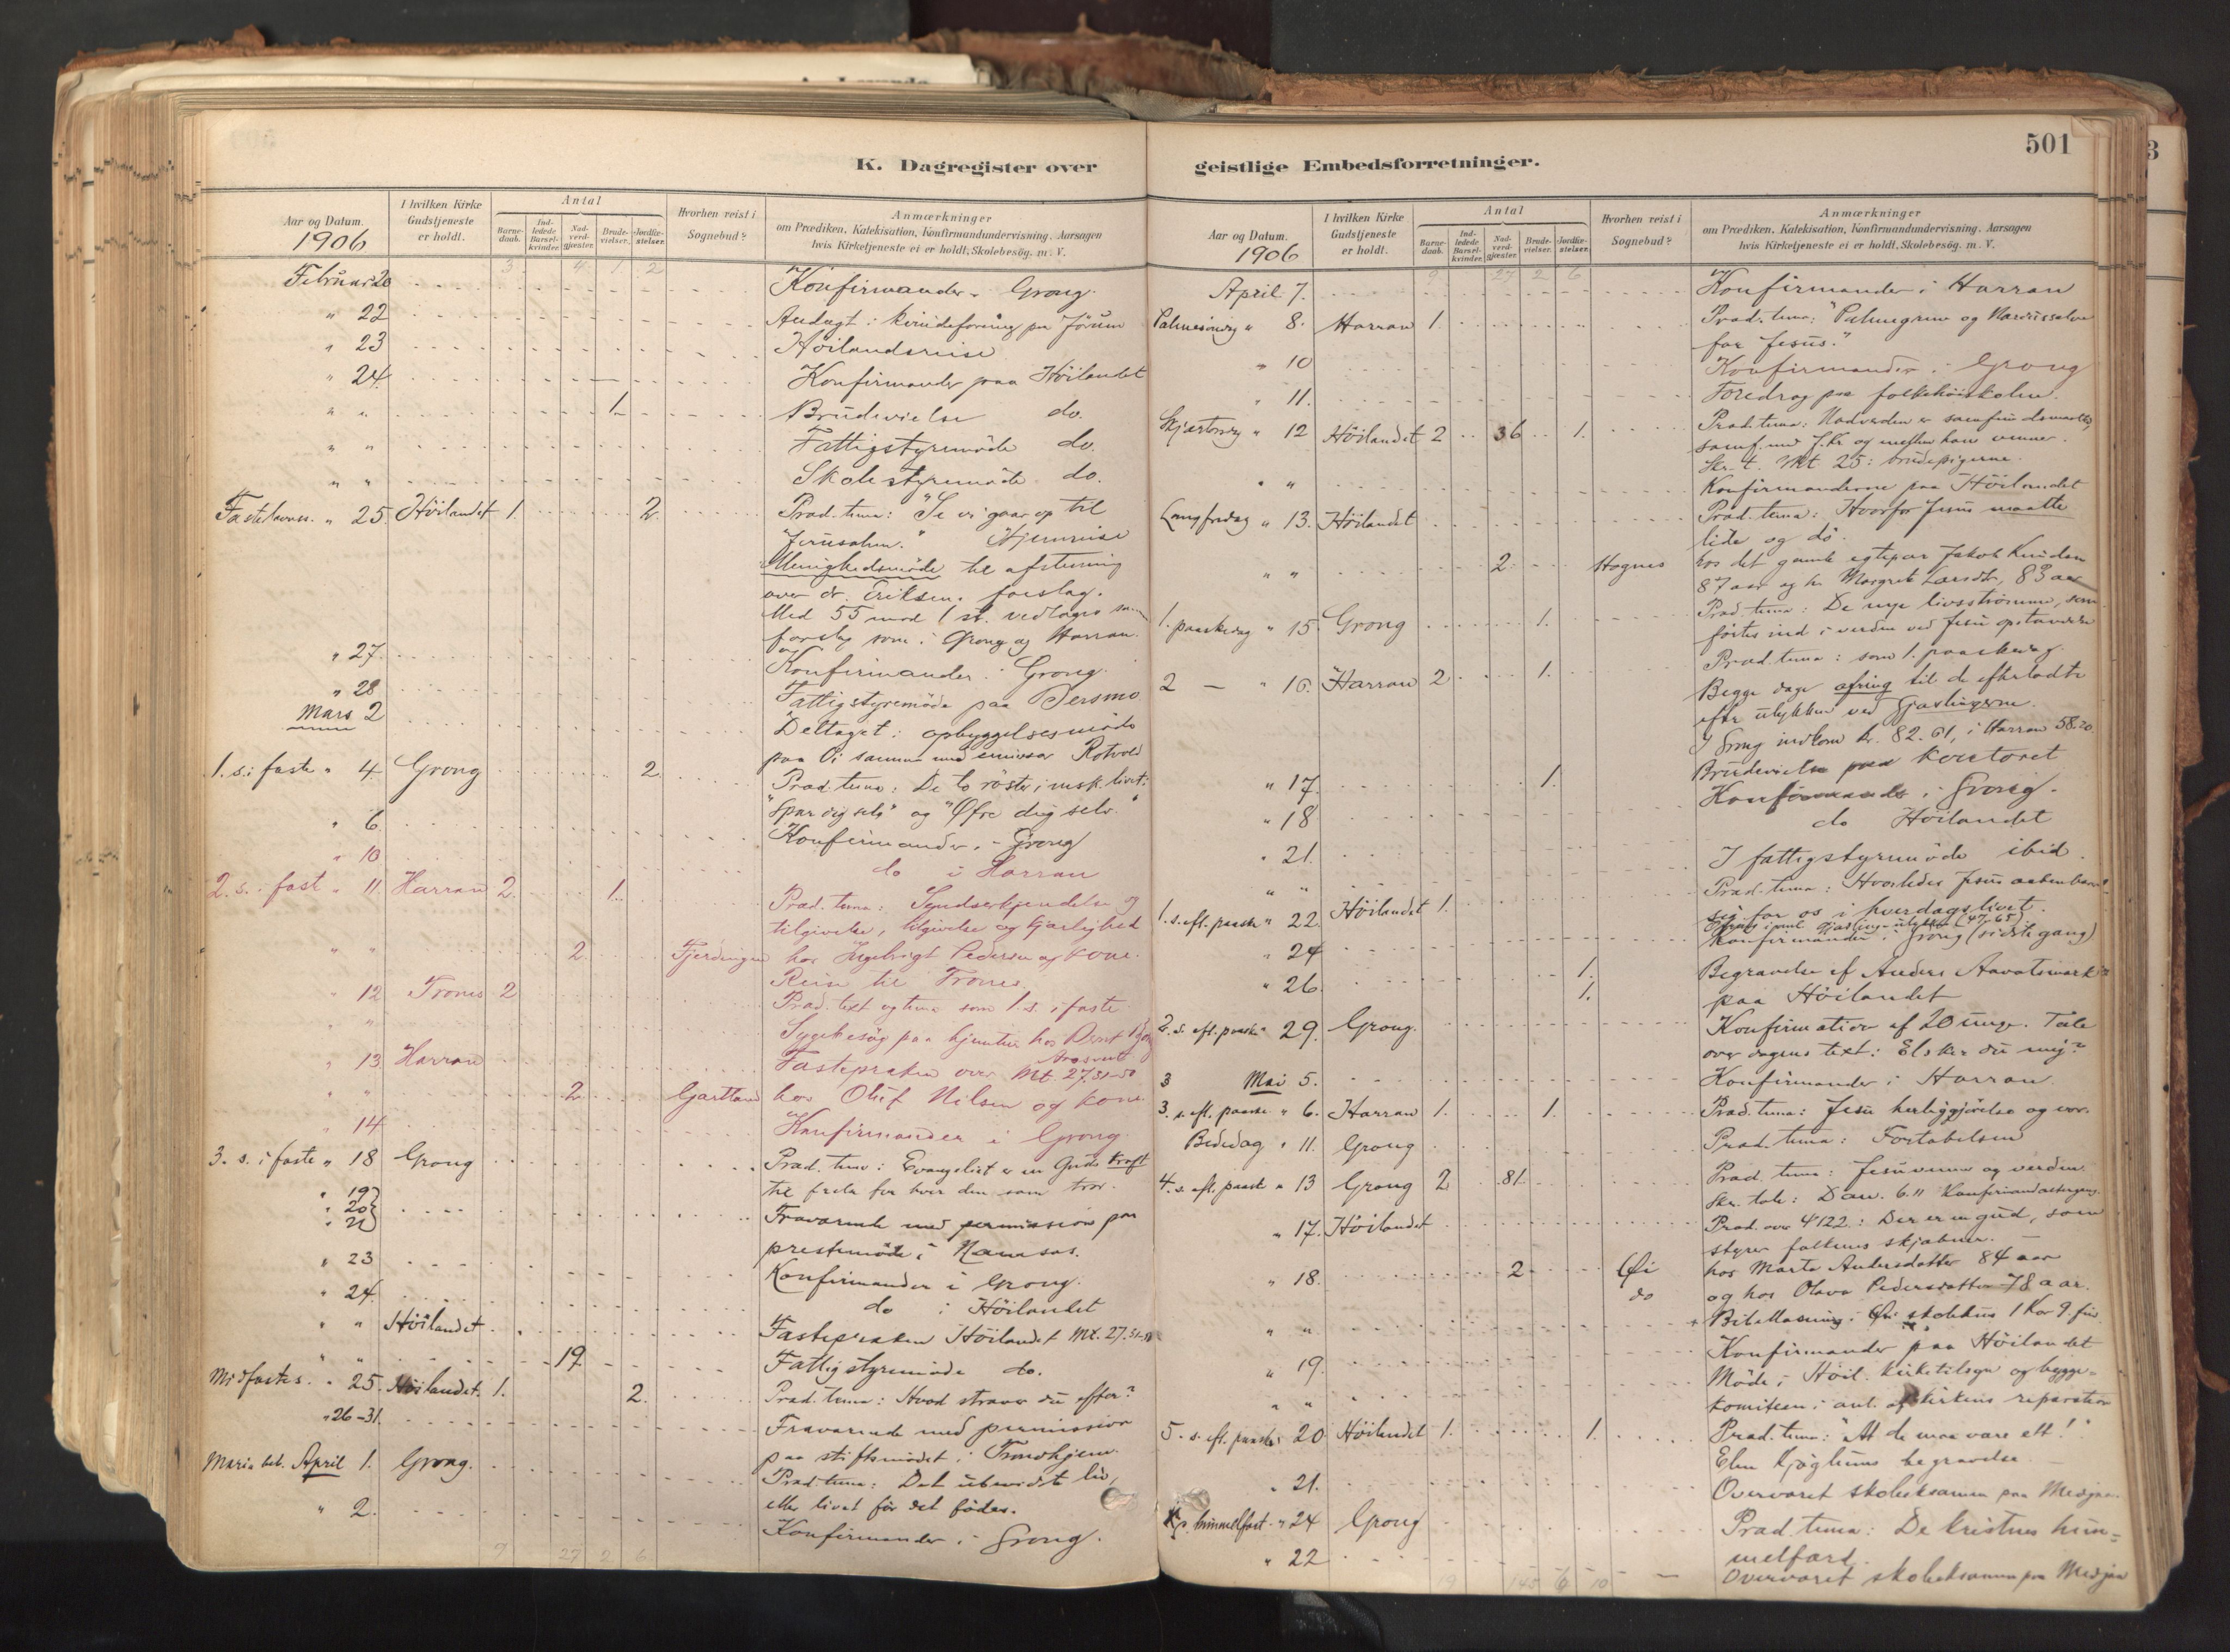 501
K. Dagregister over
geistlige Embedsforretninger.
Aar og Datum.
1906
I hvilken Kirke Gudstjeneste er holdt.
Antal
Barne-daab.
Ind-ledede Barsel-kvinder.
Nad-verd-gjæster.
Brude-vielser.
Jordfæ-stelser.
Hvorhen reist i Sognebud?
Anmærkninger
om Prædiken, Katekisation, Konfirmandundervisning, Aarsagen
hvis Kirketjeneste ei er holdt, Skolebesøg. m. V.
3 4 1 2
Februar 20 Konfirmander i Grong.
" 22 Andagt i kvindeforening paa Jørum
" 23 Høilandsreise
" 24 Konfirmander paa Høilandet
" " 1. Brudevielse do.
" " Fattigstyremøde do.
" " Skolestyremøde do.
Fastelavns. " 25 Høilandet 1. 2. Præd. tema: "Se vi gaar op til
Jerusalem." Hjemreise
Menighedsmøde til afstemning
over dr. Eriksens forslag.
Med 55 mod 1 st. vedtages samme
forslag som i Grong og Harran.
" 27. Konfirmander i Grong.
" 28 Fattigstyremøde paa Bersmo
Mars 2 Deltaget i opbyggelsesmøde
paa Øi sammen med emissær Rotvold
1. s. i faste " 4. Grong 2. Præd. tema: De to røster i mskLivet:
"Spar dig selv" og "Ofre dig selv."
" 6. Konfirmander i Grong
" 10 do i Harran
2. s. i fast " 11. Harran 2. 1. Præd. tema: Syndserkjendelse og
tilgivelse, tilgivelse og kjærlighed
" " 2. Fjerdingen hos Ingebrigt Pedersen og kone.
Reise til Trones
" 12 Trones 2 Præd. text og tema som 1. s. i faste
" Sygebesøg paa hjemtur hos Bernt
" 13. Harran Fastepræken over Mt. 27.31-50
" " 2. Gartland hos Oluf Nilsen og kone
" 14 Konfirmander i Grong.
3. s. i faste " 18 Grong Præd. tema: Evangeliet er en Guds kraft
til frelse for hver den som tror.
" 19
" 20
" 21 Fraværende med permission paa
prestemøde i Namsos.
" 23 Konfirmander i Grong.
" 24. do i Høilandet
" " Høilandet. Fastepræken Høilandet Mt. 27.31-50
" " 19. Fattigstyremøde do.
Midfastes. " 25. Høilandet. 1. 2. Præd. tema: Hvad stræver du efter?
" 26-31. Fraværende med permission
paa stiftsmødet i Trondhjem.
Maria beb. April 1. Grong. Præd. tema: Det ubevidste liv,
eller livet før det fødes.
" 2. Konfirmander i Grong.
9 27 2 6
Aar og Datum.
1906
I hvilken Kirke Gudstjeneste er holdt.
Antal
Barne-daab.
Ind-ledede Barsel-kvinder.
Nad-verd-gjæster.
Brude-vielser.
Jordfæ-stelser.
Hvorhen reist i Sognebud?
Anmærkninger
om Prædiken, Katekisation, Konfirmandundervisning, Aarsagen
hvis Kirketjeneste ei er holdt, Skolebesøg. m. V.
9 27 2 6
April 7. Konfirmander i Harran
Palmesøndag " 8. Harran 1. Præd. tema: "Palmegrene og Nardussalve
for Jesus."
" 10 Konfirmander i Grong
" 11. Foredrag paa folkehøiskolen.
Skjærtorsdag " 12 Høilandet 2 36 1. Præd. tema: Nadverden er samfundsmaaltid,
samf. med J. Kr. og mellem hans venner.
Skr. t. Mt. 25: brudepigerne.
" " Konfirmanderne paa Høilandet
Langfredag " 13. Høilandet Præd. tema: Hvorfor Jesus maatte
lide og dø.
" " 2. Hognes hos det gamle egtepar Jakob Knudsen
87 aar og hu Margrete Larsdtr, 83 aar
1. paaskedag " 15. Grong 1. Præd. tema: De nye livsstrømme, som
førtes ind i verden ved Jesu opstandelse
2 — " 16. Harran 2. 1. Præd. tema: som 1. paaskedag.
Begge dage ofring til de efterladte
efter ulykken ved Gjæslingerne.
I Grong indkom kr. 82.61, i Harran 58.20
" 17. 1. Brudevielse paa kontoret
" 18 Konfirmander i Grong.
" 21. do Høilandet
" " I fattigstyremøde ibid.
1. s. eft. paaske " 22. Høilandet 1. Præd. tema: Hvorledes Jesus aabenbarer
sig for os i hverdagslivet.
(47.65)
" 24 Konfirmander i Grong (sidste gang)
" 26. 1. Begravelse af Anders Aavatsmark
1. paa Høilandet
2. s. eft. paaske " 29. Grong. Konfirmation af 20 unge. Tale
over dagens text: Elsker du mig?
3 Mai 5. Konfirmander i Harran.
3. s. eft. paaske " 6. Harran 1. 1. Præd. tema: Jesu herliggjørelse og vor.
Bededag " 11. Grong Præd. tema: Fortabelsen
4. s. eft. paaske " 13 Grong 2. 81. Præd. tema: Jesu venner og verden.
Skr. tale: Dan. 6.11
" 17. Høilandet Præd. over 4122.: Der er en gud, som
styrer folkenes skjæbner.
" 18. 2 Øi hos Marta Andersdatter 84 aar
do og hos Olava Pedersdatter 78 aar.
" " Bibellæsning i Øi skolehus 1 Kor 9. fin
" 19. Konfirmander paa Høilandet
" " Møde i Høil. kirketilsyn og bygge-
komiteen i anl. af kirkens reparation
5. s. eft. paaske " 20 Høilandet 1. 1. Præd. tema: "At de maa være ett!"
Elen Kjøglums begravelse.
" 21. Overværet skoleeksamen paa Medjaa.
Kr. himmelfart " 24 Grong Præd. tema: De kristnes him-
melfærd.
" 22 Overværet skoleeksamen paa Medjaa
19 145 6 10